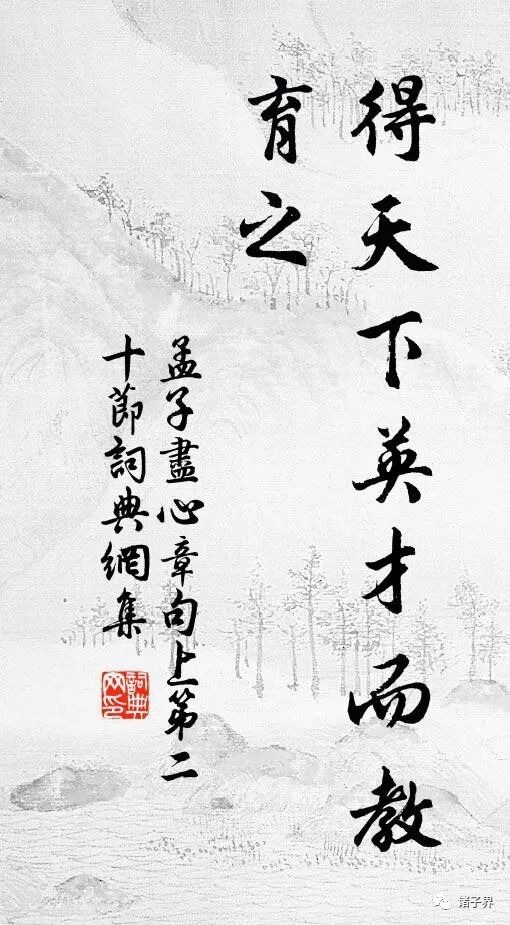 得天下英才而教
育之
孟子盡心章句上第二
十節詞典網集
詞典
网印
诸子界